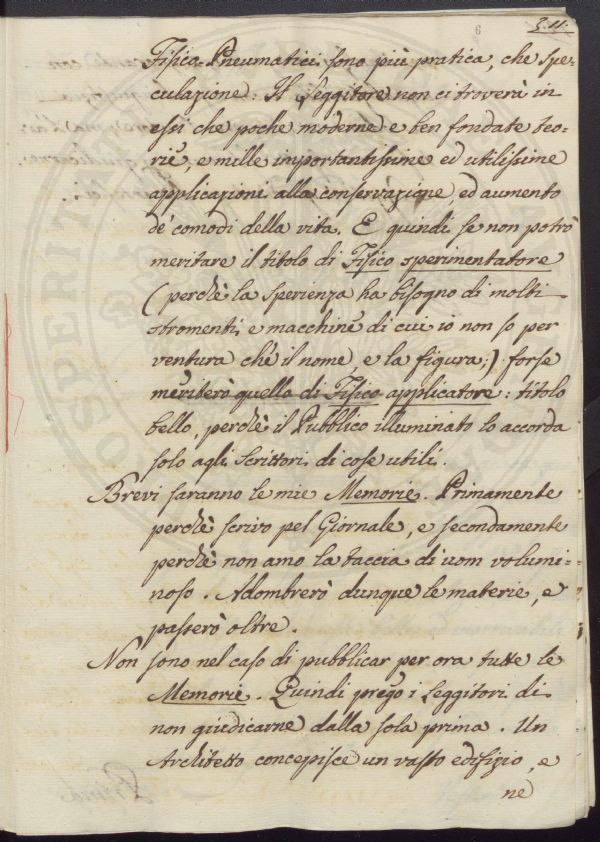 6
3.11.
Fisico-Pneumatici sono più pratica, che spe=
culazione. Il Leggitore non ci troverà in
essi che poche moderne e ben fondate teo=
rie, e mille importantissime ed utilissime
applicazioni alla conservazione, ed aumento
de' comodi della vita. E quindi se non potrò
meritare il titolo di Fisico sperimentatore
(perchè la sperienza ha bisogno di molti
stromenti e macchine di cui io non so per
ventura chè il nome, e la figura;) forse
meriterò quello di Fisico applicatore: titolo
bello, perchè il Pubblico illuminato lo accorda
solo agli Scrittori di cose utili.
Brevi saranno le mie Memorie. Primamente
perchè scrivo pel Giornale, e secondamente
perchè non amo la taccia di uom volumi=
noso. Adombrerò dunque le materie, e
passerò oltre.
Non sono nel caso di pubblicar per ora tutte le
Memorie. Quindi prego i Leggitori di
non giudicarne dalla sola prima. Un
Architetto concepisce un vasto edifizio, e
ne